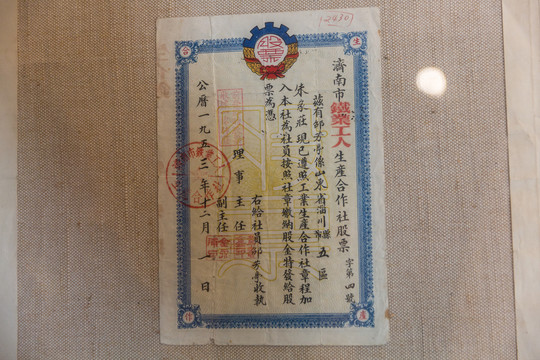 (2480)
股票
生
產
合
作
濟南市鐵業工人生產合作社股票 字第四號
茲有邵芳亭係山東省淄川縣市五區
朱家莊現已遵照工業生產合作社章程加
入本社為社員按照社章繳納股金特發給股
票為憑
右給社員邵芳亭收執
理事主任
副主任
公曆一九五三年十二月一日